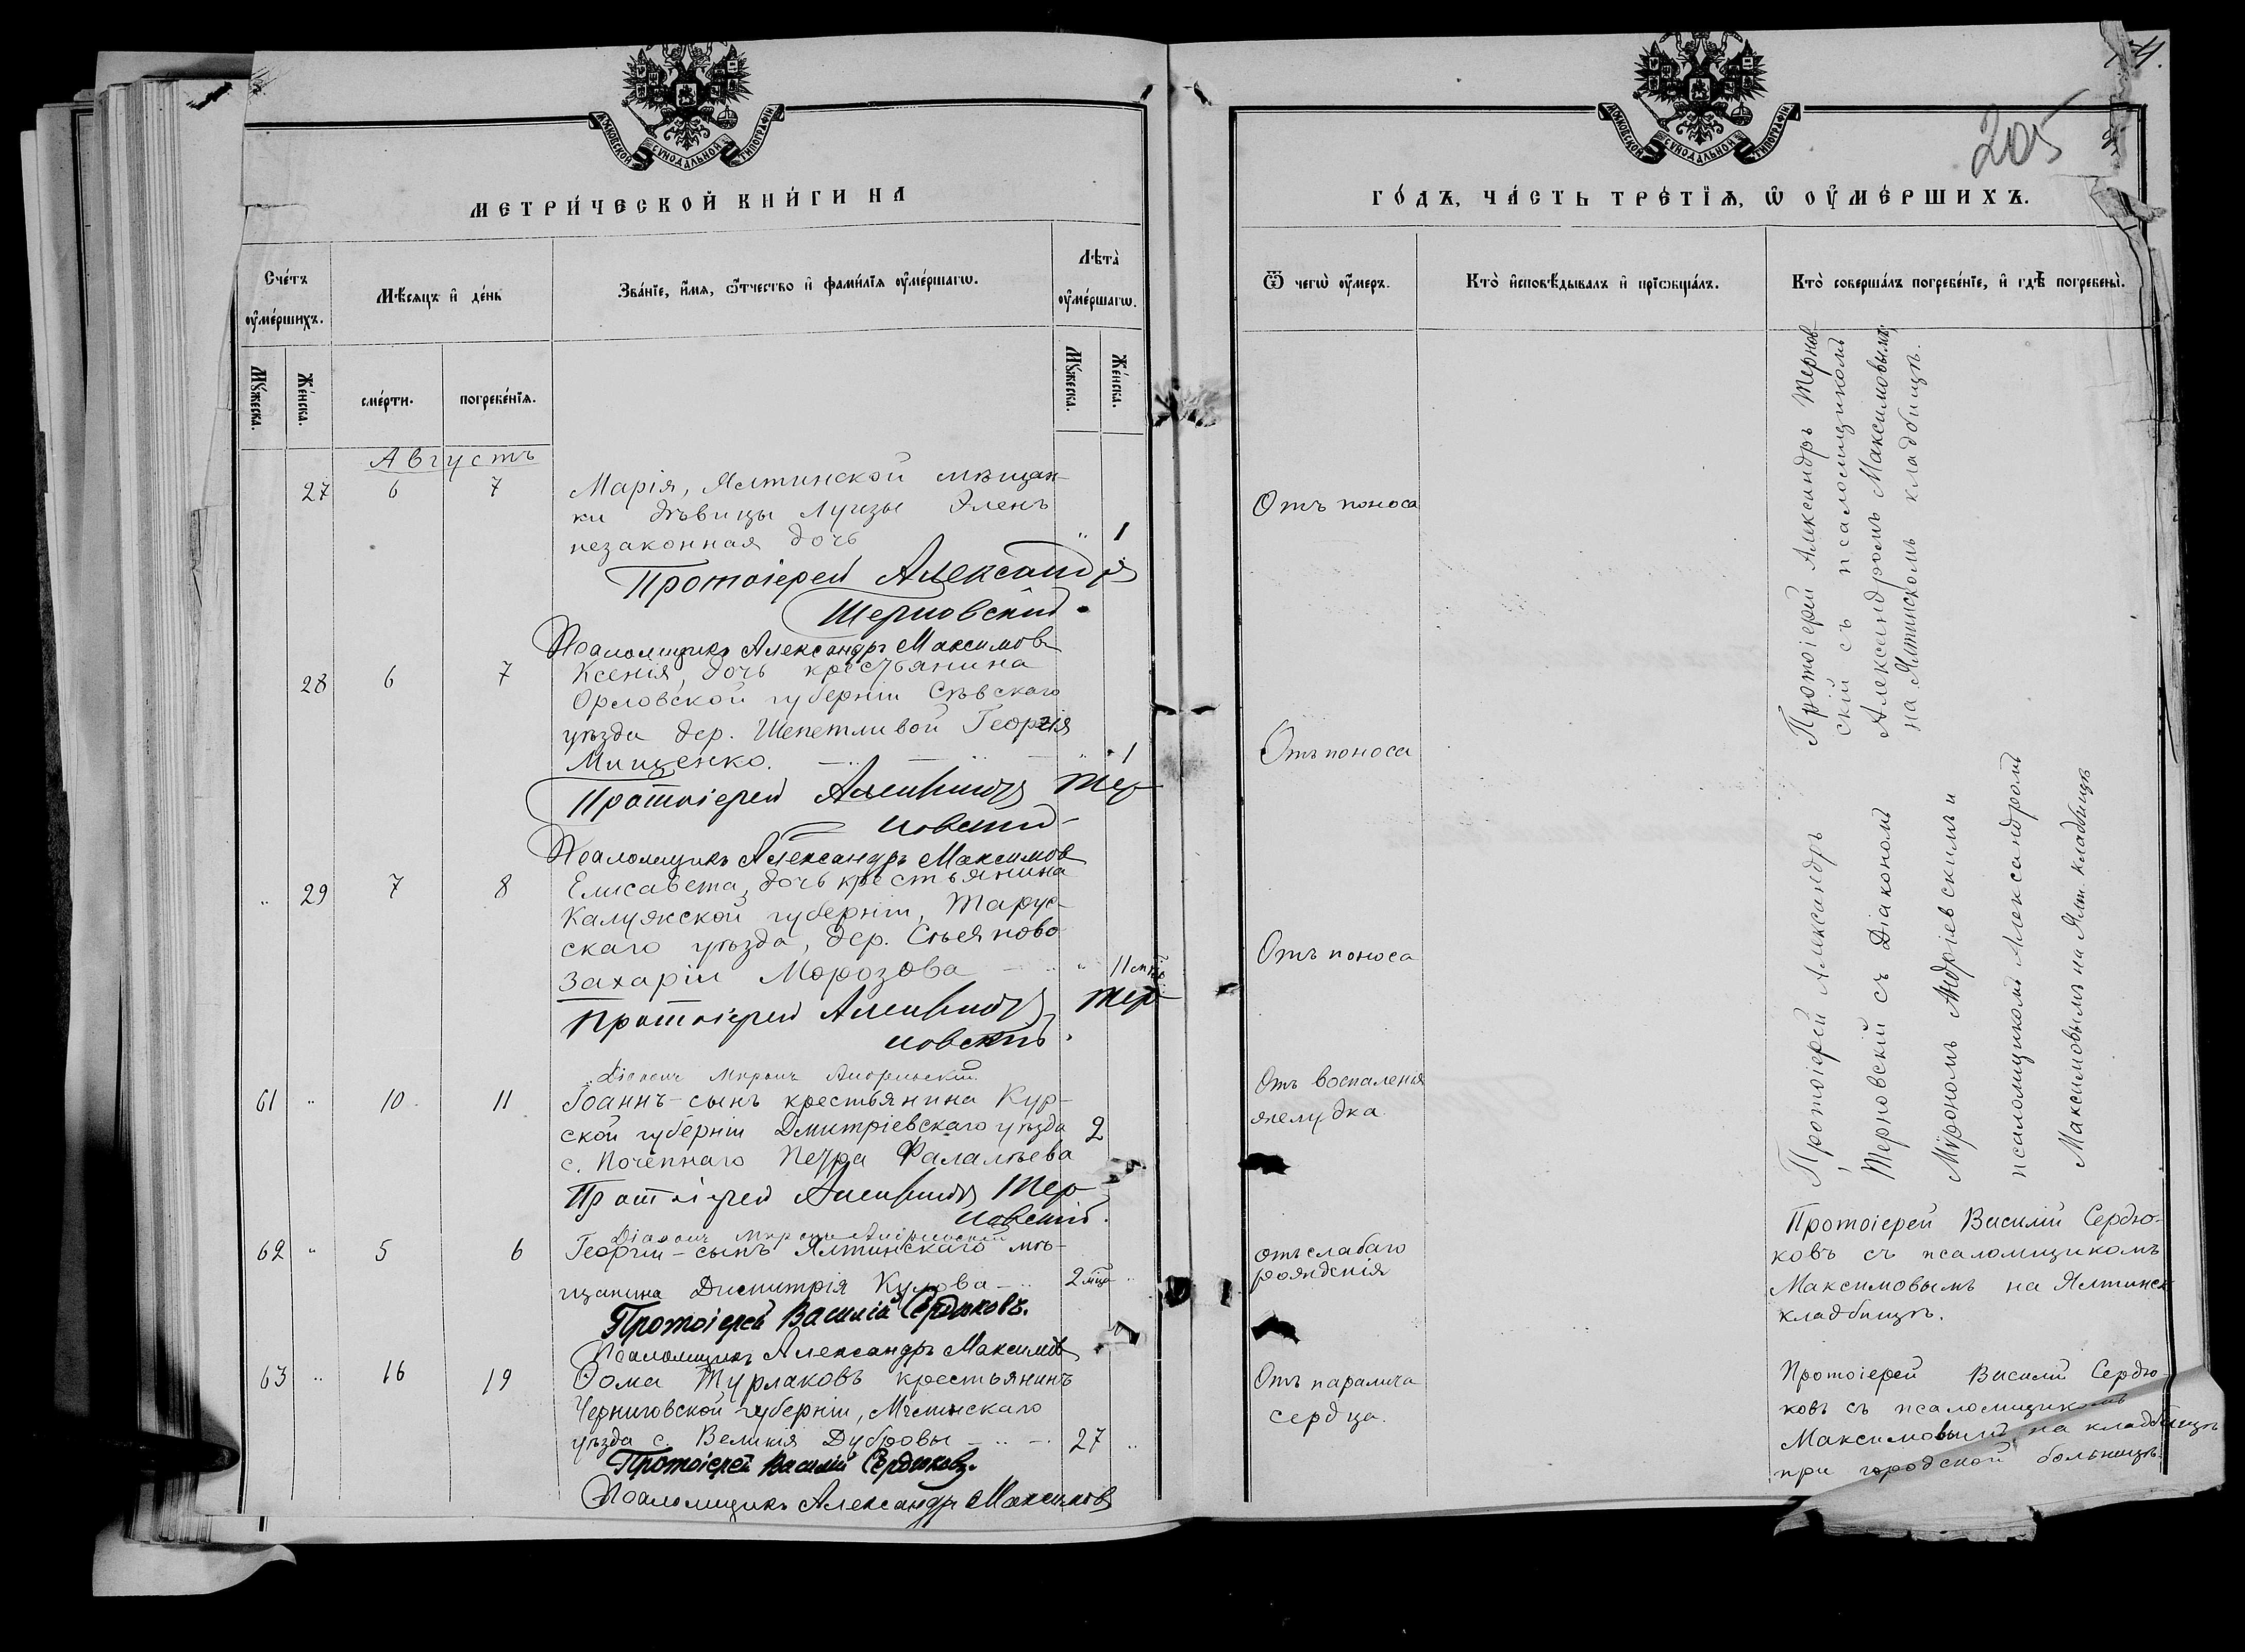 МОСКОВСКОЙ СѴНОДАЛЬНОЙ ТИПОГРАФІИ
МЕТРИ́ЧЕСКОЙ КНИ́ГИ НА
Сче́тъ оу҆ме́ршихъ.
Мѣ́сяцъ и҆ де́нь
Зва́нїе, и҆́мя, ѻ҆́тчество и҆ фами́лїя оу҆ме́ршагѡ.
Лѣта̀ оу҆ме́ршагѡ.
Мꙋ́жеска.
Же́нска.
сме́рти.
погребе́нїя.
Мꙋ́жеска.
Же́нска.
Августъ
27 6 7 Марія, Ялтинской мѣщан-
ки дѣвицы Луизы Эленъ
незаконная дочь " 1
Протоіерей Александръ
Терновскій
Псаломщикъ Александръ Максимов
28 6 7 Ксенія, дочь крестьянина
Орловской губерніи Сѣвскаго
уѣзда дер. Шепетливой Георгія
Мищенко. " 1
Протоіерей Александръ Тер
новскій
Псаломщикъ Александръ Максимов
" 29 7 8 Елисавета, дочь крестьянина
Калужской губерніи, Тарус-
скаго уѣзда, дер.
Захаріи Морозова " 11 мѣс
Протоіерей Александръ Тер
новскій.
Діаконъ Миронъ Андріевскій
61 " 10 11 Іоаннъ - сынъ крестьянина Кур-
ской губерніи Дмитріевскаго уѣзда 2
с. Почепнаго Петра Фалалѣева
Протоіерей Александръ Тер
новскій.
Діаконъ Миронъ Андріевскій
62 " 5 6 Георгій - сынъ Ялтинскаго мѣ-
щанина Димитрія Кулова 2 мѣс "
Протоіерей Василій Сердюковъ.
Псаломщикъ Александръ Максимов
63 " 16 19 Ѳома Турлаковъ крестьянинъ
Черниговской губерніи, Мглинскаго
уѣзда с. Великія Дубровы 27 "
Протоіерей Василій Сердюковъ.
Псаломщикъ Александръ Максимов
МОСКОВСКОЙ СѴНОДАЛЬНОЙ ТИПОГРАФІИ
205
ГО́ДЪ, ЧА́СТЬ ТРЕ́ТЇѦ, Ѡ҆ ОУ҆МЕ́РШИХЪ.
Ѿ чегѡ̀ оу҆́меръ.
Кто̀ и҆сповѣ́дывалъ и҆ прїѡбща́лъ.
Кто̀ соверша́лъ погребе́нїе, и҆ гдѣ̀ погребены̀.
Отъ поноса
Отъ поноса
Протоіерей Александръ Тернов-
скій съ псаломщикомъ
Александромъ Максимовымъ
на Ялтинскомъ кладбищѣ.
Отъ поноса
Отъ воспаленія
желудка
Протоіерей Александръ
Терновскій съ Діакономъ
Мѵрономъ Андріевскимъ и
псаломщикомъ Александромъ
Максимовымъ на Ялт. кладбищѣ
отъ слабаго
рожденія
Протоіерей Василій Сердю-
ковъ съ псаломщикомъ
Максимовымъ на Ялтинск
кладбищѣ.
Отъ паралича
сердца.
Протоіерей Василій Сердю-
ковъ съ псаломщикомъ
Максимовымъ на кладбищѣ
при городской больницѣ.